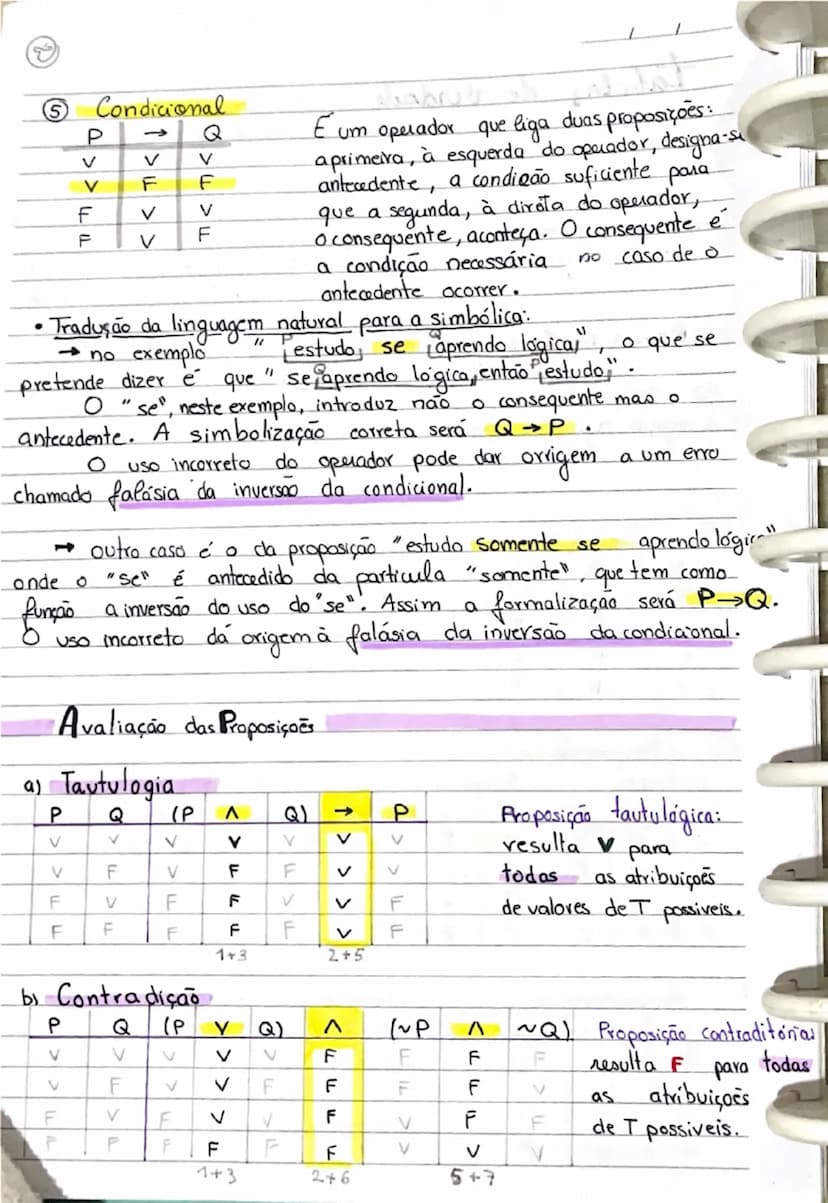 ⑤ Condicional
P → Q
V V V
V F F
F V V
F V F
É um operador que liga duas proposições:
a primeira, à esquerda do operador, designa-se
antecedente, a condição suficiente para
que a segunda, à direita do operador,
o consequente, aconteça. O consequente é
a condição necessária no caso de o
antecedente ocorrer.
• Tradução da linguagem natural para a simbólica:
→ no exemplo "estudo se aprendo lógica", o que se
P Q
pretende dizer é que "se aprendo lógica, então estudo".
Q P
O "se", neste exemplo, introduz não o consequente mas o
antecedente. A simbolização correta será Q → P.
O uso incorreto do operador pode dar orrigem a um erro
chamado falásia da inversão da condicional.
→ outro caso é o da proposição "estudo somente se aprendo lógica"
onde o "se" é antecedido da partícula "somente", que tem como
função a inversão do uso do "se". Assim a formalização será P→Q.
O uso incorreto dá origem à falásia da inversão da condicional.
Avaliação das Proposições
a) Tautulogia
P Q (P ∧ Q) → P
V V V V V V V
V F V F F V V
F V F F V V F
F F F F F V F
1+3 2+5
Proposição tautulógica:
resulta V para
todas as atribuições
de valores de T possiveis.
b) Contradição
P Q (P ∨ Q) ∧ (~P ∧ ~Q)
V V V V V F F F F
V F V V F F F F V
F V F V V F V F F
F F F F F F V V V
1+3 2+6 5+7
Proposição contraditória:
resulta F para todas
as atribuições
de T possiveis.